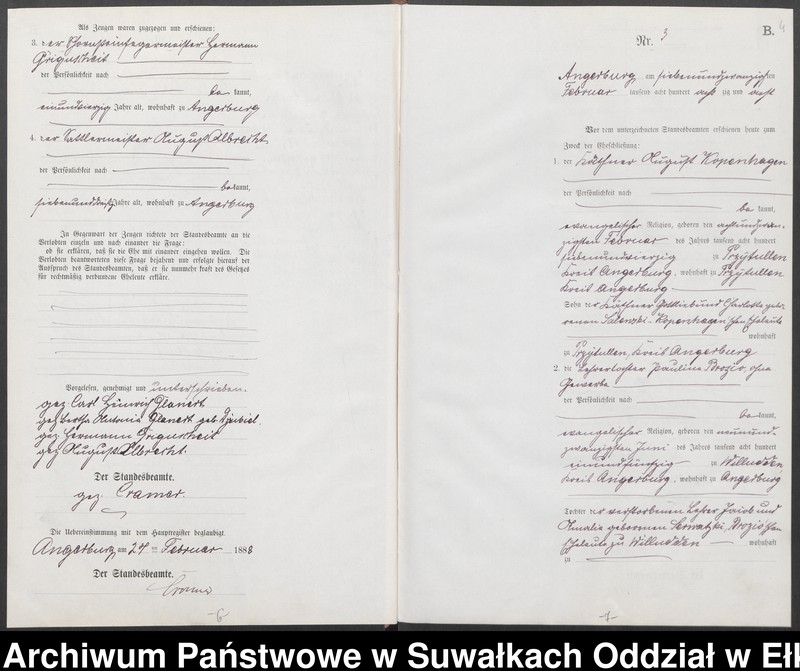 Als Zeugen waren zugezogen und erschienen:
3. der Schornsteinfegermeister Hermann
Grigutsheit
der Persönlichkeit nach
be kannt,
einundvierzig Jahre alt, wohnhaft zu Angerburg
4. der Sattlermeister August Albrecht
der Persönlichkeit nach
be kannt,
siebenunddreißig Jahre alt, wohnhaft zu Angerburg
In Gegenwart der Zeugen richtete der Standesbeamte an die
Verlobten einzeln und nach einander die Frage:
ob sie erklären, daß sie die Ehe mit einander eingehen wollen. Die
Verlobten beantworteten diese Frage bejahend und erfolgte hierauf der
Ausspruch des Standesbeamten, daß er sie nunmehr kraft des Gesetzes
für rechtmäßig verbundene Eheleute erkläre.
Vorgelesen, genehmigt und unterschrieben.
gez. Carl Heinrich Glanert
gez. Bertha Antonie Glanert geb.
gez. Hermann Grigutsheit
gez. August Albrecht.
Der Standesbeamte.
gez. Cramer.
Die Uebereinstimmung mit dem Hauptregister beglaubigt.
Angerburg am 27 ten Februar 1888
Der Standesbeamte.
Cramer
-6-
B. 4
Nr. 3
Angerburg am siebenundzwanzigsten
Februar tausend acht hundert acht zig und acht
Vor dem unterzeichneten Standesbeamten erschienen heute zum
Zweck der Eheschließung:
1. der Käthner August Kopenhagen
der Persönlichkeit nach
be kannt,
evangelischer Religion, geboren den achtundzwan-
zigsten Februar des Jahres tausend acht hundert
siebenundvierzig zu Przytullen
Kreis Angerburg, wohnhaft zu Przytullen
Kreis Angerburg
Sohn der Käthner Gottlieb und Charlotte gebo-
renen Salewski-Kopenhagen'schen Eheleute
wohnhaft
zu Przytullen, Kreis Angerburg
2. die Lehrertochter Pauline Brozio, ohne
Gewerbe
der Persönlichkeit nach
be kannt,
evangelischer Religion, geboren den neunund-
zwanzigsten Juni des Jahres tausend acht hundert
neunundfünfzig zu Willudden
Kreis Angerburg, wohnhaft zu Angerburg
Tochter der verstorbenen Lehrer Jacob und
Amalie geborenen Brozio'schen
Eheleute zu Willudden wohnhaft
zu
-7-
Archiwum Państwowe w Suwałkach Oddział w Eł